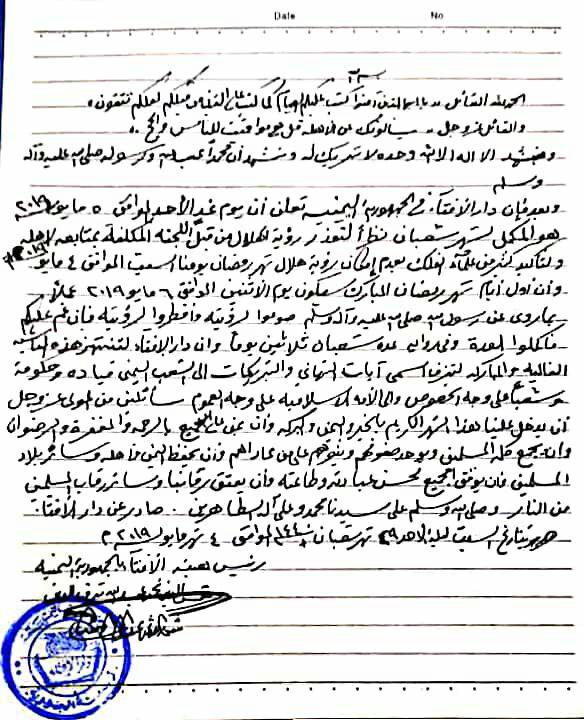 Date No
الحمد لله القائل يا أيها الذين آمنوا كتب عليكم الصيام كما كتب على الذين من قبلكم لعلكم تتقون
والقائل عز وجل يسألونك عن الأهلة قل هي مواقيت للناس والحج
ونشهد الا اله الا الله وحده لا شريك له ونشهد أن محمداً عبد الله ورسوله صلى الله عليه وآله
وسلم
وبعد فإن دار الافتاء في الجمهورية اليمنية تعلن أن يوم غدٍ الأحد الموافق ٥ مايو ٢٠١٩
هو المكمل لشهر شعبان نظراً لتعذر رؤية الهلال من قبل اللجنة المكلفة بمتابعة الأهلة
ولتأكيد كثير من علماء الفلك بعدم إمكان رؤية هلال شهر رمضان يومنا السبت الموافق ٤ مايو ٢٠١٩
وأن أول أيام شهر رمضان المبارك سيكون يوم الاثنين الموافق ٦ مايو ٢٠١٩ عملاً
بما روي عن رسول الله صلى الله عليه وآله وسلم صوموا لرؤيته وأفطروا لرؤيته فان غم عليكم
فأكملوا العدة وفي رواية عدة شعبان ثلاثين يوماً وان دار الافتاء لتنتهز هذه المناسبة
الغالية والمباركة لتزف أسمى آيات التهاني والتبريكات الى الشعب اليمني قيادة وحكومة
وشعباً على وجه الخصوص والى الأمة الاسلامية على وجه العموم سائلين من المولى عز وجل
أن يدخل علينا هذا الشهر الكريم بالخير واليمن والبركة وان يمن على الجميع بالرحمة والمغفرة والرضوان
وان يجمع كلمة المسلمين ويوحد صفوفهم وينصرهم على من عاداهم وان يحفظ اليمن وأهله وسائر بلاد
المسلمين وان يوفق الجميع لحسن عبادته وطاعته وأن يعتق رقابنا وسائر رقاب المسلمين
من النار وصلى الله وسلم على سيدنا محمد وعلى آله الطاهرين صادر عن دار الافتاء
بتاريخ السبت ليلة الأحد ٢٩ شهر شعبان ١٤٤٠ الموافق ٤ شهر مايو ٢٠١٩ م
رئيس هيئة الافتاء بالجمهورية اليمنية